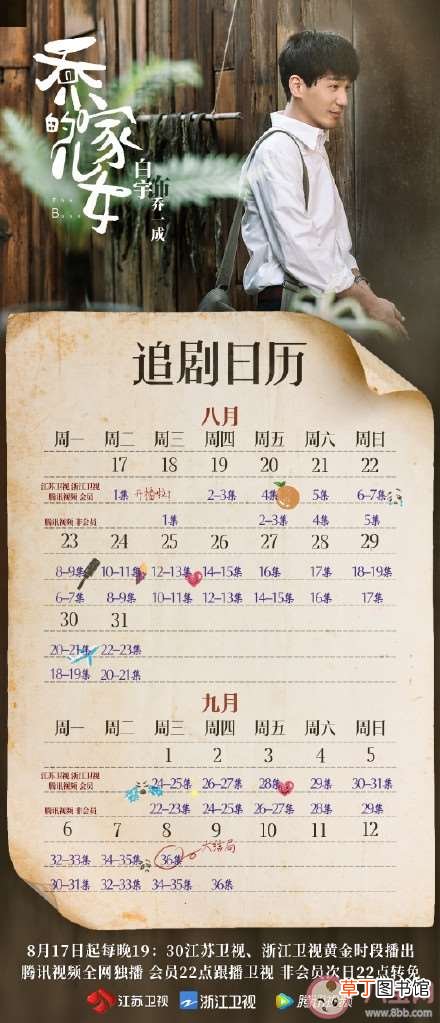 乔家的儿女
白宇 饰 乔一成
追剧日历
八月
周一 周二 周三 周四 周五 周六 周日
17 18 19 20 21 22
江苏卫视 浙江卫视
腾讯视频 会员
1集 开播啦! 2-3集 4集 5集 6-7集
腾讯视频 非会员
1集 2-3集 4集 5集
23 24 25 26 27 28 29
8-9集 10-11集 12-13集 14-15集 16集 17集 18-19集
6-7集 8-9集 10-11集 12-13集 14-15集 16集 17集
30 31
20-21集 22-23集
18-19集 20-21集
九月
周一 周二 周三 周四 周五 周六 周日
1 2 3 4 5
江苏卫视 浙江卫视
腾讯视频 会员
24-25集 26-27集 28集 29集 30-31集
腾讯视频 非会员
22-23集 24-25集 26-27集 28集 29集
6 7 8 9 10 11 12
32-33集 34-35集 36集 大结局
30-31集 32-33集 34-35集 36集
8月17日起每晚19：30江苏卫视、浙江卫视黄金时段播出
腾讯视频全网独播 会员22点跟播卫视 非会员次日22点转免
江苏卫视 浙江卫视 腾讯视频
草丁图书馆
www.8bb.com